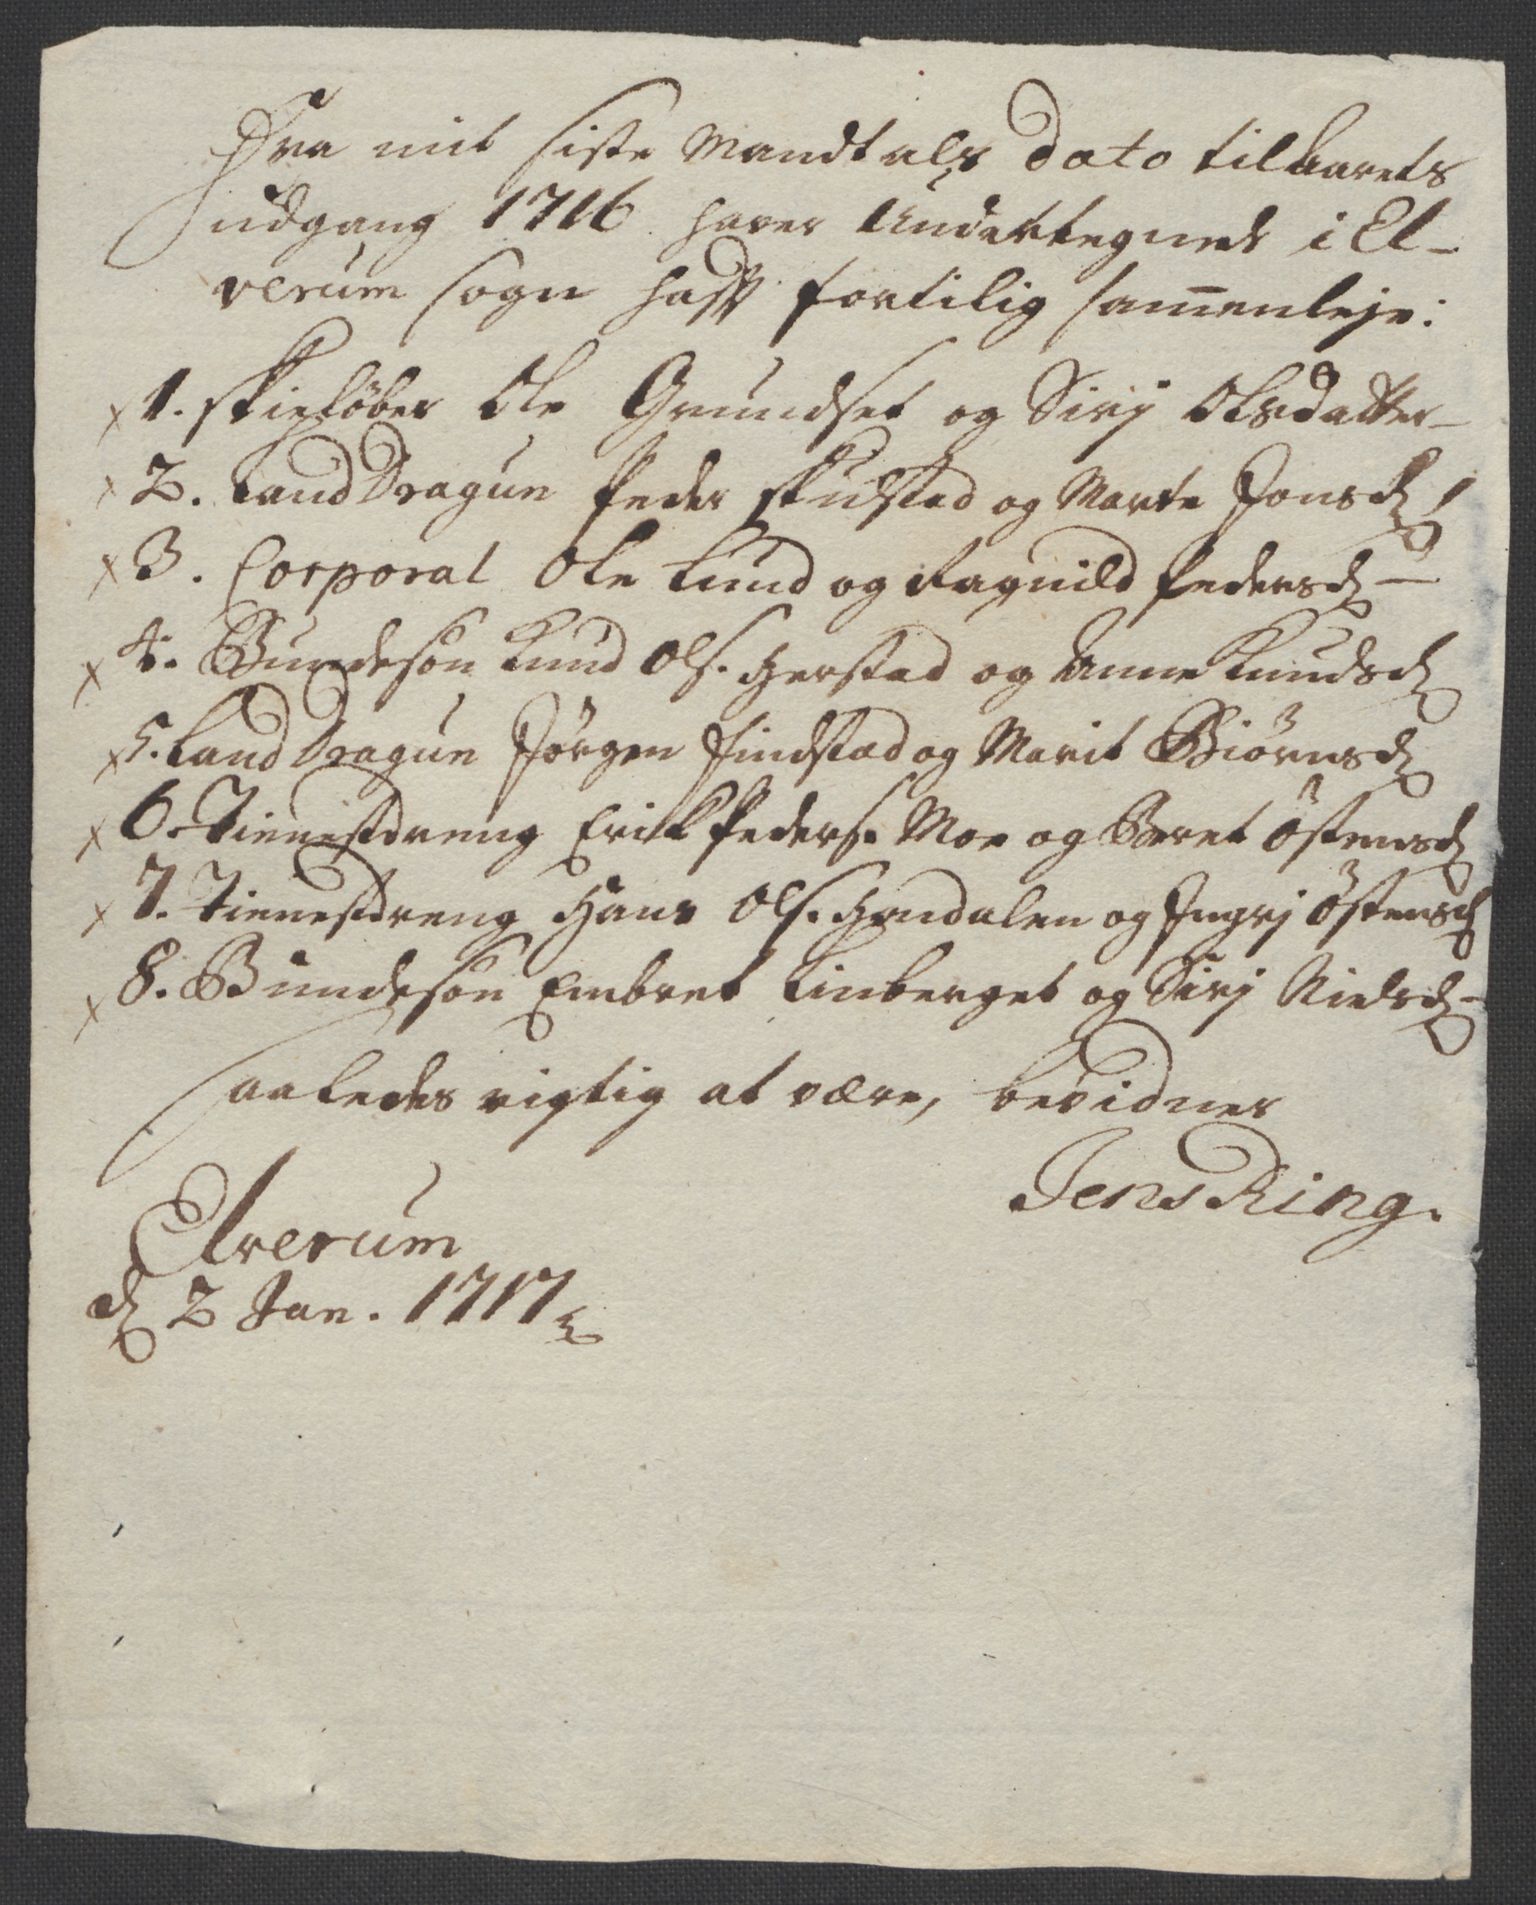 Fra mit siste Mandtals dato til Aarets
udgang 1716 haver Undertegnede i El-
verum sogn haft fortilig sammenleje:
x 1. skieløber Ole Grundset og Sirj Olsdatter-
x 2. Land Dragun Peder skulstad og Marte Jonsd
x 3. Corporal Ole Lund og Ragnild Pedersd -
x 4. Bundesøn Knud Ols. Herstad og Anne Knudsd
x 5. Land Dragun Jørgen Findstad og Marit Biørnsd
x 6. Tienistdreng Erik Peders. Moe og Beret Østensd
x 7. Tienestdreng Hans Ols. Handalen og Ingrj Østensd
x 8. Bundesøn Embret Linberget og Sirj Nielsd -
saaledes rigtig at være, bevidner
Jens Ring.
Elverum
d 2 Jan. 1717